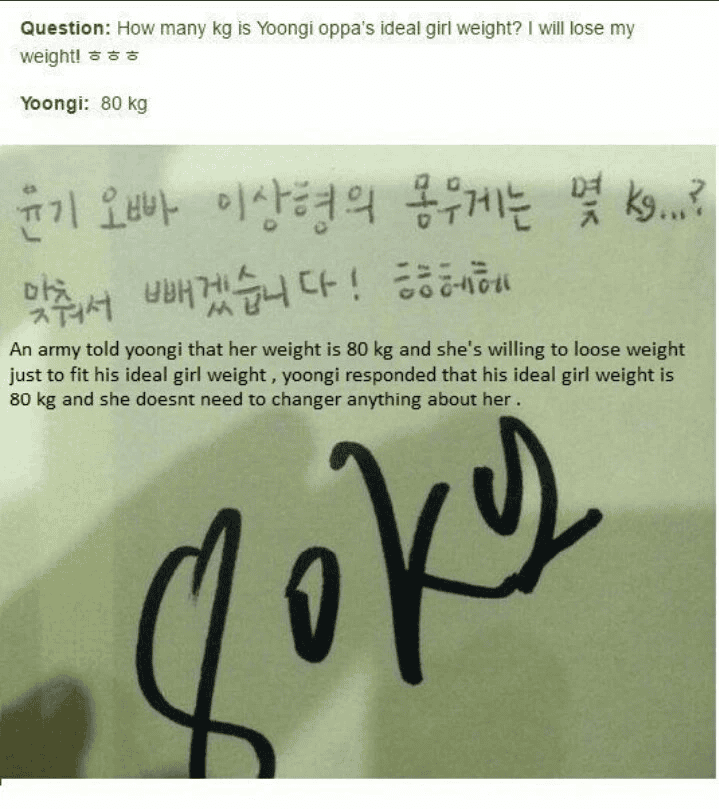 Question: How many kg is Yoongi oppa's ideal girl weight? I will lose my
weight! ㅎㅎㅎ
Yoongi: 80 kg
윤기 오빠 이상형의 몸무게는 몇 kg...?
맞춰서 빼겠습니다! 흐흐헤헤
An army told yoongi that her weight is 80 kg and she's willing to loose weight
just to fit his ideal girl weight , yoongi responded that his ideal girl weight is
80 kg and she doesnt need to changer anything about her .
80kg